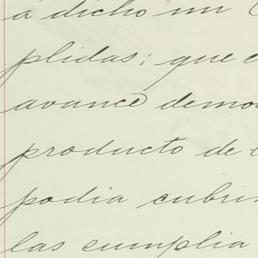 á dicho un
plidas; que
avance demo
producto de
podia cubri
las cumplia